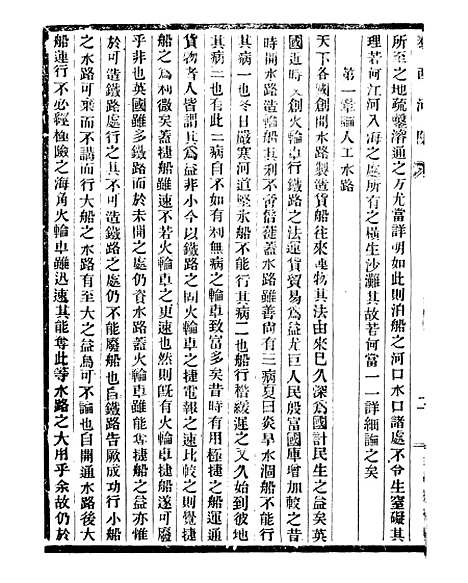 所至之地疏鑿溶通之方尤當詳明如此則泊船之河口水口諸處不令生窒礙其
理若何江河入海之處所有之橫生沙灘其故若何當一一詳細論之矣
第一章論人工水路
天下各國創開水路製造貨船往來運物其法由來已久深爲國計民生之益矣英
國近時又創火輪車行鐵路之法運貨貿易爲益尤巨人民殷富國庫增加較之昔
時開水路造船其利不啻倍蓰蓋水路雖善尚有三病夏日炎旱水涸船不能行
其病一也冬日嚴寒河道堅氷船不能行其病二也船行稽緩遲之又久始到彼地
其病三也有此三病自不如有利無病之輪車致富多矣昔時有用極捷之船運通
貨物者人皆謂其爲益非小今以鐵路之固火輪車之捷電報之速比較之則覺捷
船之爲利微矣蓋捷船雖速不若火輪車之更速也然則旣有火輪車捷船
乎非也英國雖多鐵路而於未開之處仍資水路蓋火輪車雖能奪捷船之益亦惟
於可造鐵路處行之其不可造鐵路之處仍不能廢船也自鐵路告厥成功行小船
之水路可棄而不講而行大船之水路有至大之益烏可不論也自開通水路後大
船運行不必經極險之海角火輪車雖迅速其能奪此等水路之大用乎余故仍於